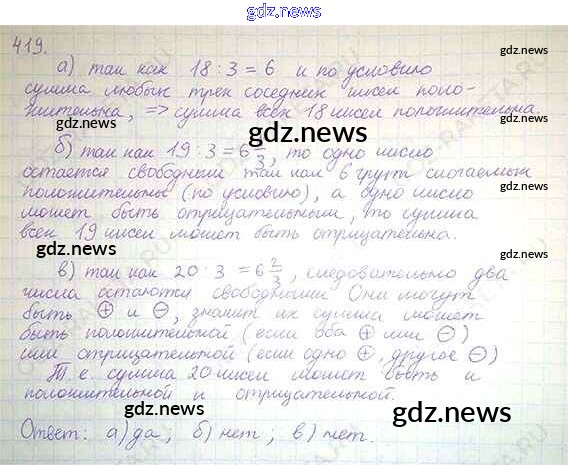 gdz.news
419.
gdz.news
а) так как 18 : 3 = 6 и по условию
сумма любых трех соседних чисел поло-
жительна, => сумма всех 18 чисел положительна.
gdz.news
gdz.news
б) так как 19 : 3 = 6 1/3, то одно число
остается свободным так как 6 групп слогаемых
положительны (по условию), а одно число
может быть отрицательным, то сумма
всех 19 чисел может быть отрицательна.
gdz.news
gdz.news
в) так как 20 : 3 = 6 2/3, следовательно два
числа остаются свободными Они могут
быть ⊕ и ⊖, значит их сумма может
быть положительной (если оба ⊕ или ⊖)
или отрицательной (если одно ⊕, другое ⊖)
Т. е. сумма 20 чисел может быть и
положительной и отрицательной.
gdz.news
gdz.news
Ответ: а) да; б) нет; в) нет.
gdz.news